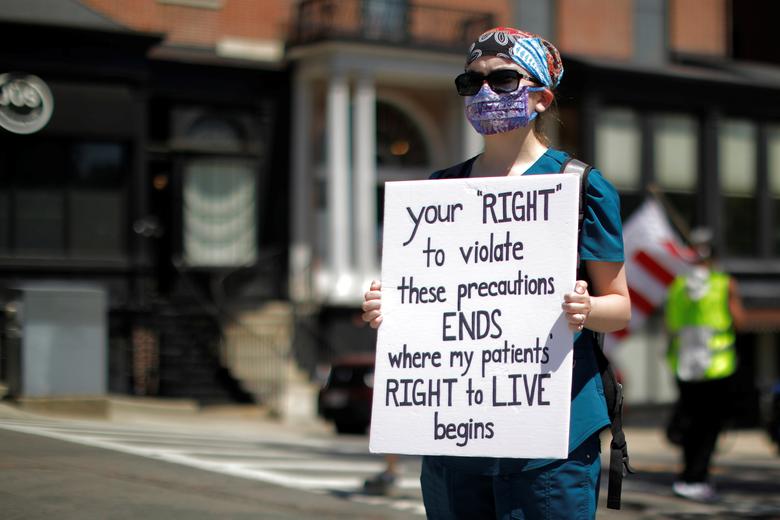 your "RIGHT"
to violate
these precautions
ENDS
where my patients'
RIGHT to LIVE
begins